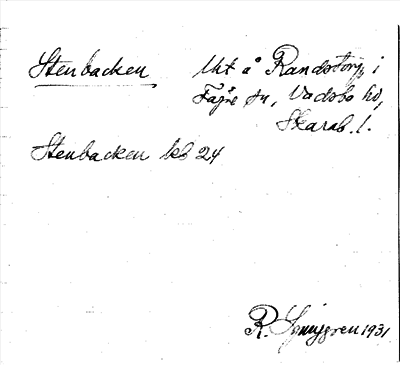 Stenbacken Uht å Randstorp, i
Fägre sn, Vadsbo hd,
Skarab. l.
Stenbacken kb 24
R. Ljunggren 1931